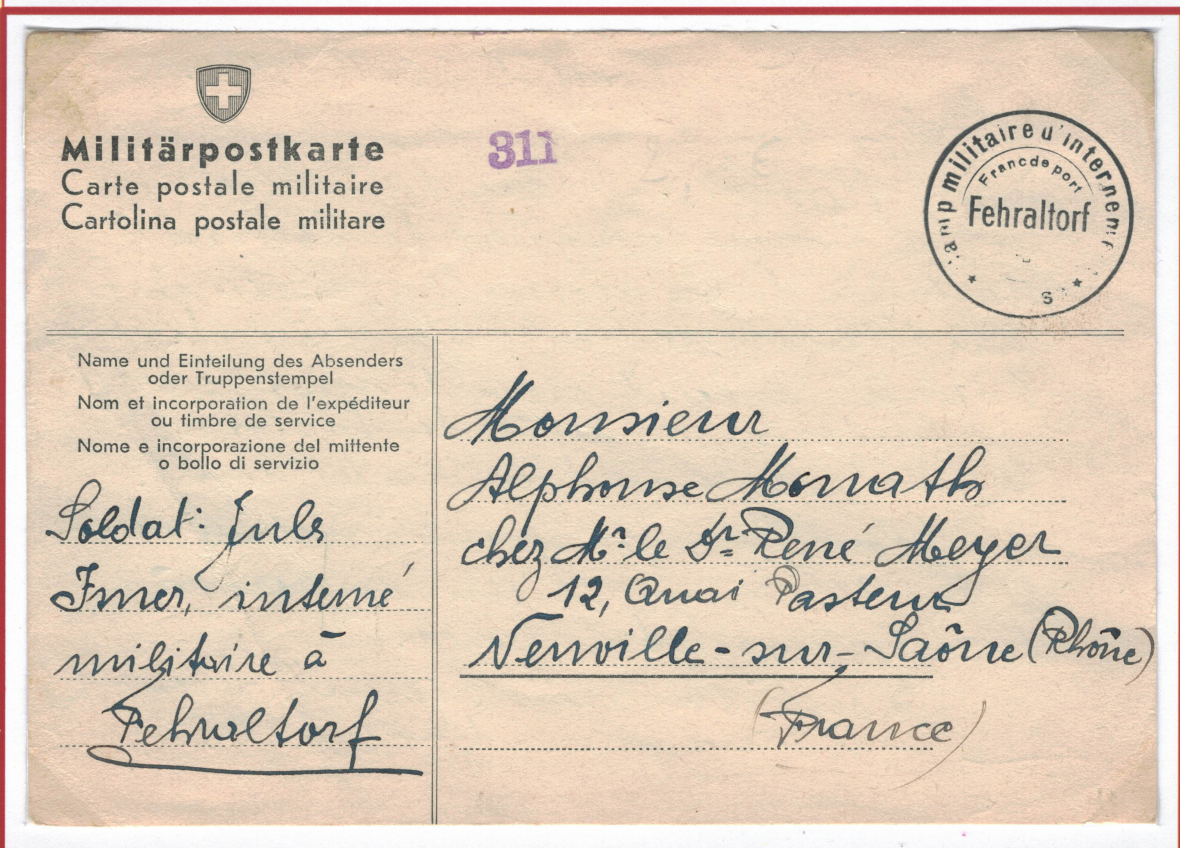 Militärpostkarte
Carte postale militaire
Cartolina postale militare
311
militaire d'internem
Franc de port
Fehraltorf
Name und Einteilung des Absenders
oder Truppenstempel
Nom et incorporation de l'expéditeur
ou timbre de service
Nome e incorporazione del mittente
o bollo di servizio
Soldat: Juls
Imer, interné
militaire à
Fehraltorf
Monsieur
Alphonse
chez Mr. le Dr. René Meyer
12, Quai Pasteur
Neuville-sur-Saône (Rhône)
(France)